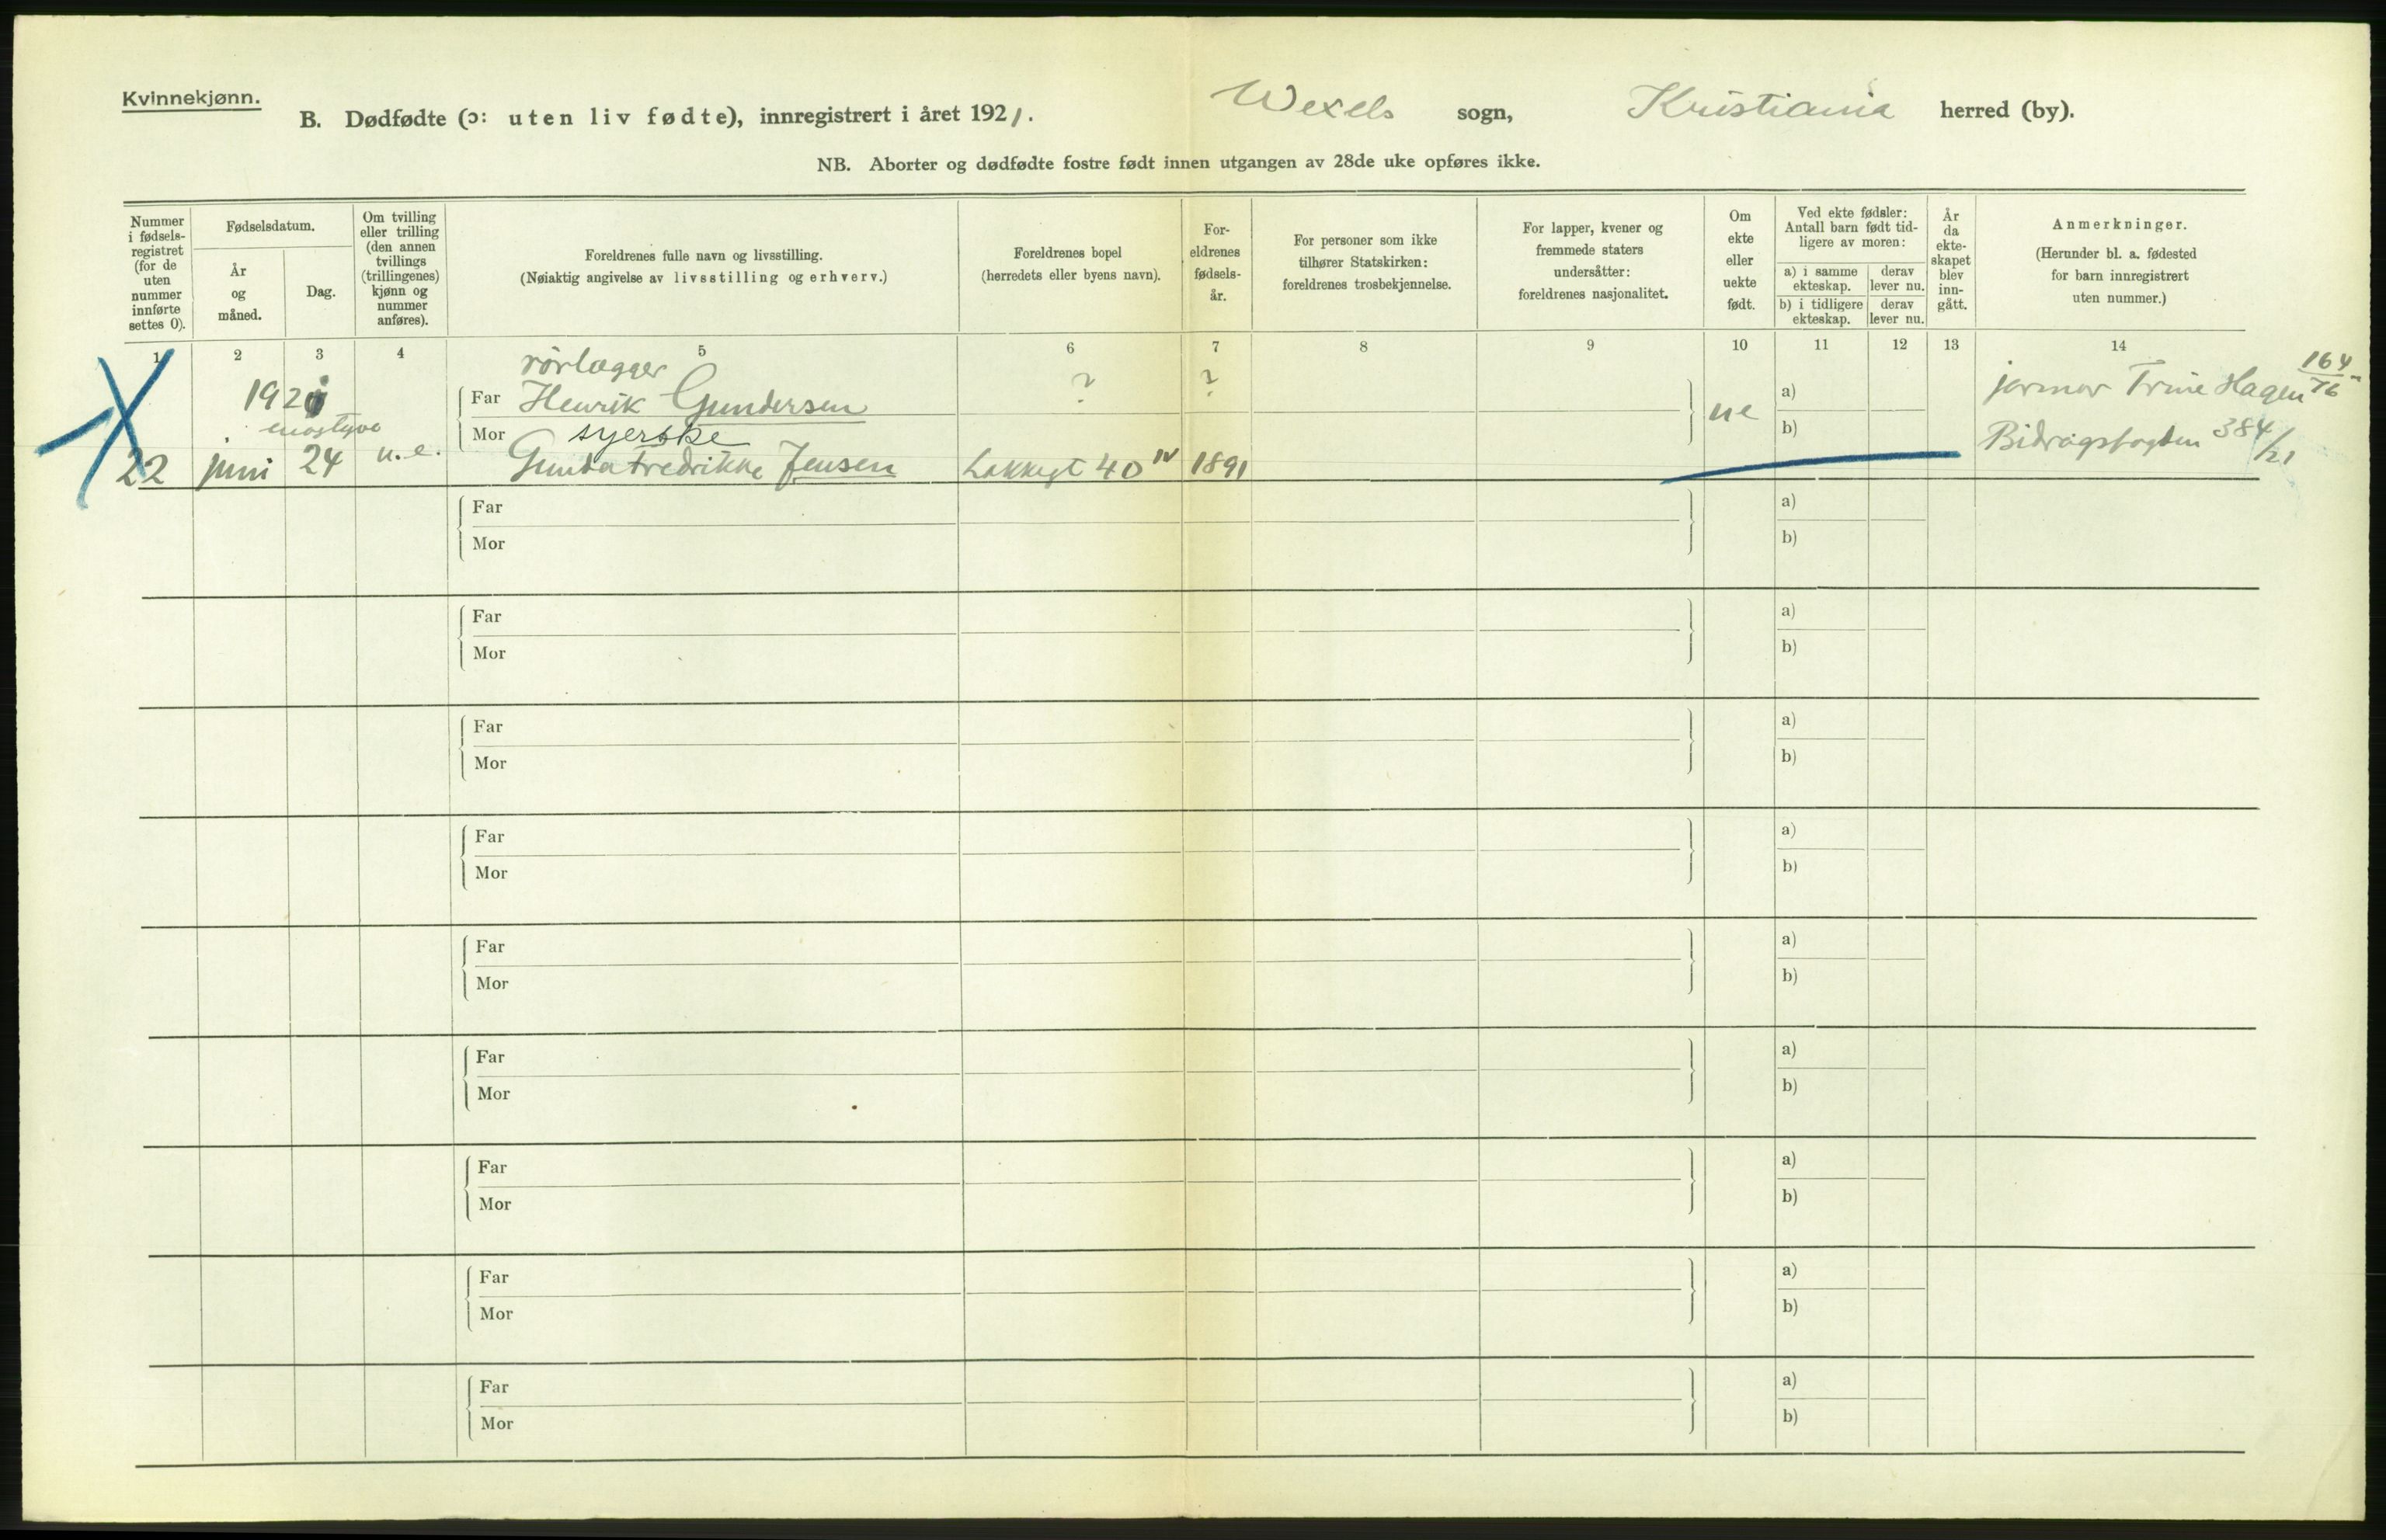 Kvinnekjønn.
B. Dødfødte (ɔ: uten liv fødte), innregistrert i året 1921. Wexels sogn, Kristiania herred (by).
NB. Aborter og dødfødte fostre født innen utgangen av 28de uke opføres ikke.
Nummer i fødsels-registret (for de uten nummer innførte settes 0).
Fødselsdatum.
År og måned.
Dag.
Om tvilling eller trilling (den annen tvillings (trillingenes) kjønn og nummer anføres).
Foreldrenes fulle navn og livsstilling.
(Nøiaktig angivelse av livsstilling og erhverv.)
Foreldrenes bopel
(herredets eller byens navn).
For-eldrenes fødsels-år.
For personer som ikke tilhører Statskirken: foreldrenes trosbekjennelse.
For lapper, kvener og fremmede staters undersåtter: foreldrenes nasjonalitet.
Om ekte eller uekte født.
Ved ekte fødsler: Antall barn født tid-ligere av moren:
a) i samme ekteskap.
derav lever nu.
b) i tidligere ekteskap.
derav lever nu.
År da ekte-skapet blev inn-gått.
Anmerkninger.
(Herunder bl. a. fødested for barn innregistrert uten nummer.)
1 2 3 4 5 6 7 8 9 10 11 12 13 14
rørlægger
1921 Far Henrik Gundersen ? ? ue a) jormor Trine Hagen 164/76
enogtyve
Mor syerske b) Bidragsfogden 384/21
22 juni 24 u.e. Gunda Fredrikke Jensen Lakkegt 40 IV 1891
Far a)
Mor b)
Far a)
Mor b)
Far a)
Mor b)
Far a)
Mor b)
Far a)
Mor b)
Far a)
Mor b)
Far a)
Mor b)
Far a)
Mor b)
Far a)
Mor b)